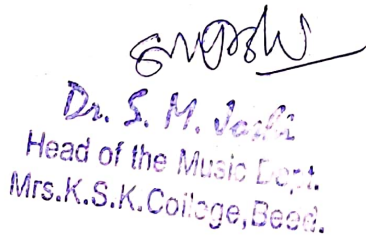 Dr. S. M. Joshi
Head of the Music Dept.
Mrs.K.S.K.College,Beed.